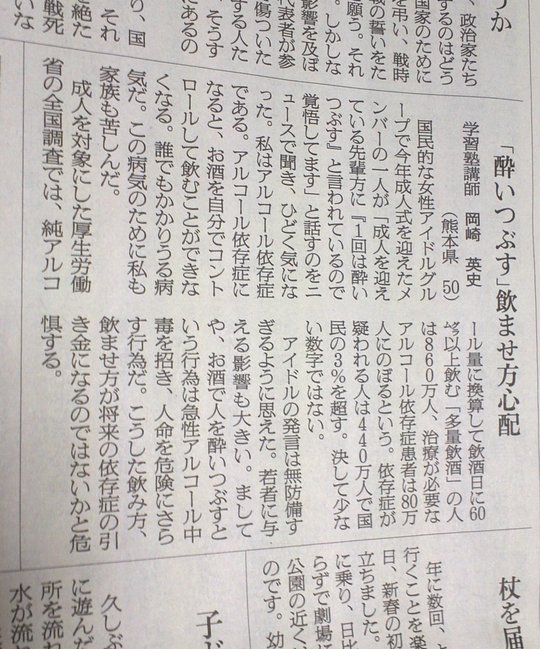 うか
、政治家たち
するのはどう
国家のために
を弔い、戦時
の誓いをた
願う。それ
。しかしな
影響を及ぼ
代表者が参
傷ついた
する人た
そうす
にあるの
り、国
それ
を絶た
戦死
いな
「酔いつぶす」飲ませ方心配
学習塾講師　岡崎　英史
（熊本県　50）
国民的な女性アイドルグル
ープで今年成人式を迎えたメ
ンバーの一人が「成人を迎え
ている先輩方に『1回は酔い
つぶす』と言われているので
覚悟してます」と話すのをニ
ュースで聞き、ひどく気にな
った。私はアルコール依存症
である。アルコール依存症に
なると、お酒を自分でコント
ロールして飲むことができな
くなる。誰でもかかりうる病
気だ。この病気のために私も
家族も苦しんだ。
成人を対象にした厚生労働
省の全国調査では、純アルコ
ール量に換算して飲酒日に60
㌘以上飲む「多量飲酒」の人
は860万人、治療が必要な
アルコール依存症患者は80万
人にのぼるという。依存症が
疑われる人は440万人で国
民の3％を超す。決して少な
い数字ではない。
アイドルの発言は無防備す
ぎるように思えた。若者に与
える影響も大きい。まして
や、お酒で人を酔いつぶすと
いう行為は急性アルコール中
毒を招き、人命を危険にさら
す行為だ。こうした飲み方、
飲ませ方が将来の依存症の引
き金になるのではないかと危
惧する。
杖を届
年に数回、と
行くことを楽
日、新春の初
立ちました。
に乗り、日比
らずで劇場に
公園の近く、
のです。幼
子ど
久しぶ
に遊んだ
所を流れ
水が流れ